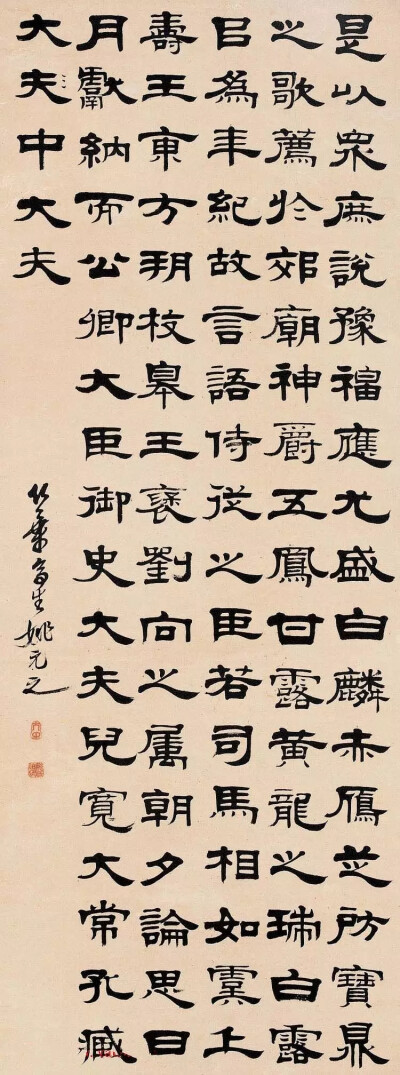 是以眾庶說豫福應尤盛白麟赤鴈芝房寶鼎
之歌薦於郊廟神爵五鳳甘露黃龍之瑞白露
㠯為年紀故言語侍從之臣若司馬相如虞丘
壽王東方朔枚皋王襃劉向之屬朝夕論思日
月獻納而公卿大臣御史大夫兒寬大常孔臧
大夫中大夫
竹葉亭生姚元之